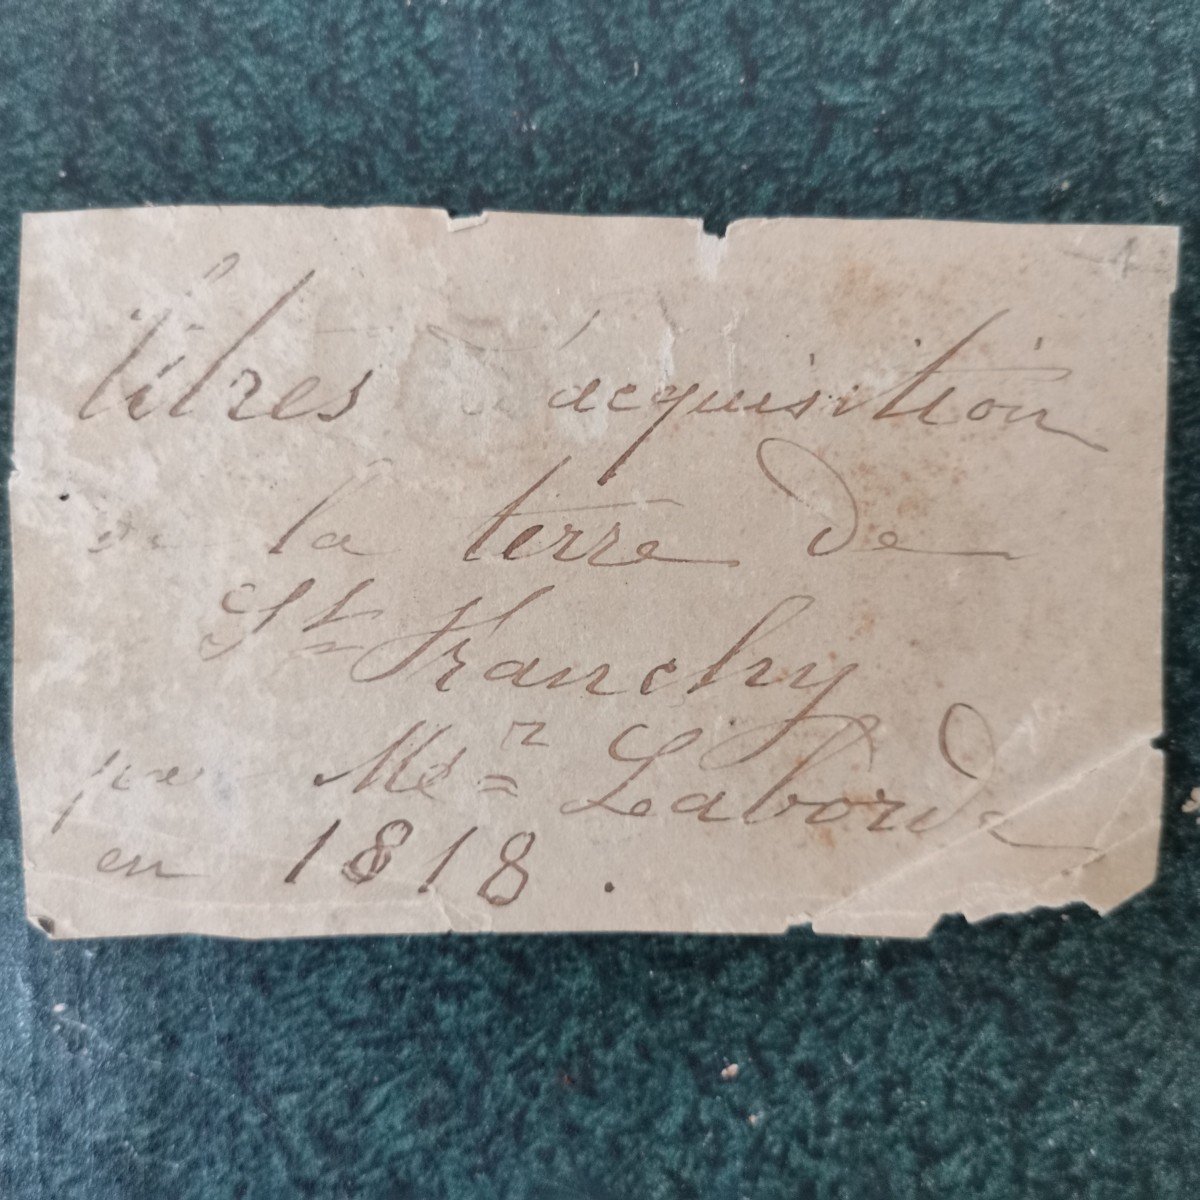 titres d'acquisition
de la terre de
St Franchy
par Mr Laborde
en 1818.